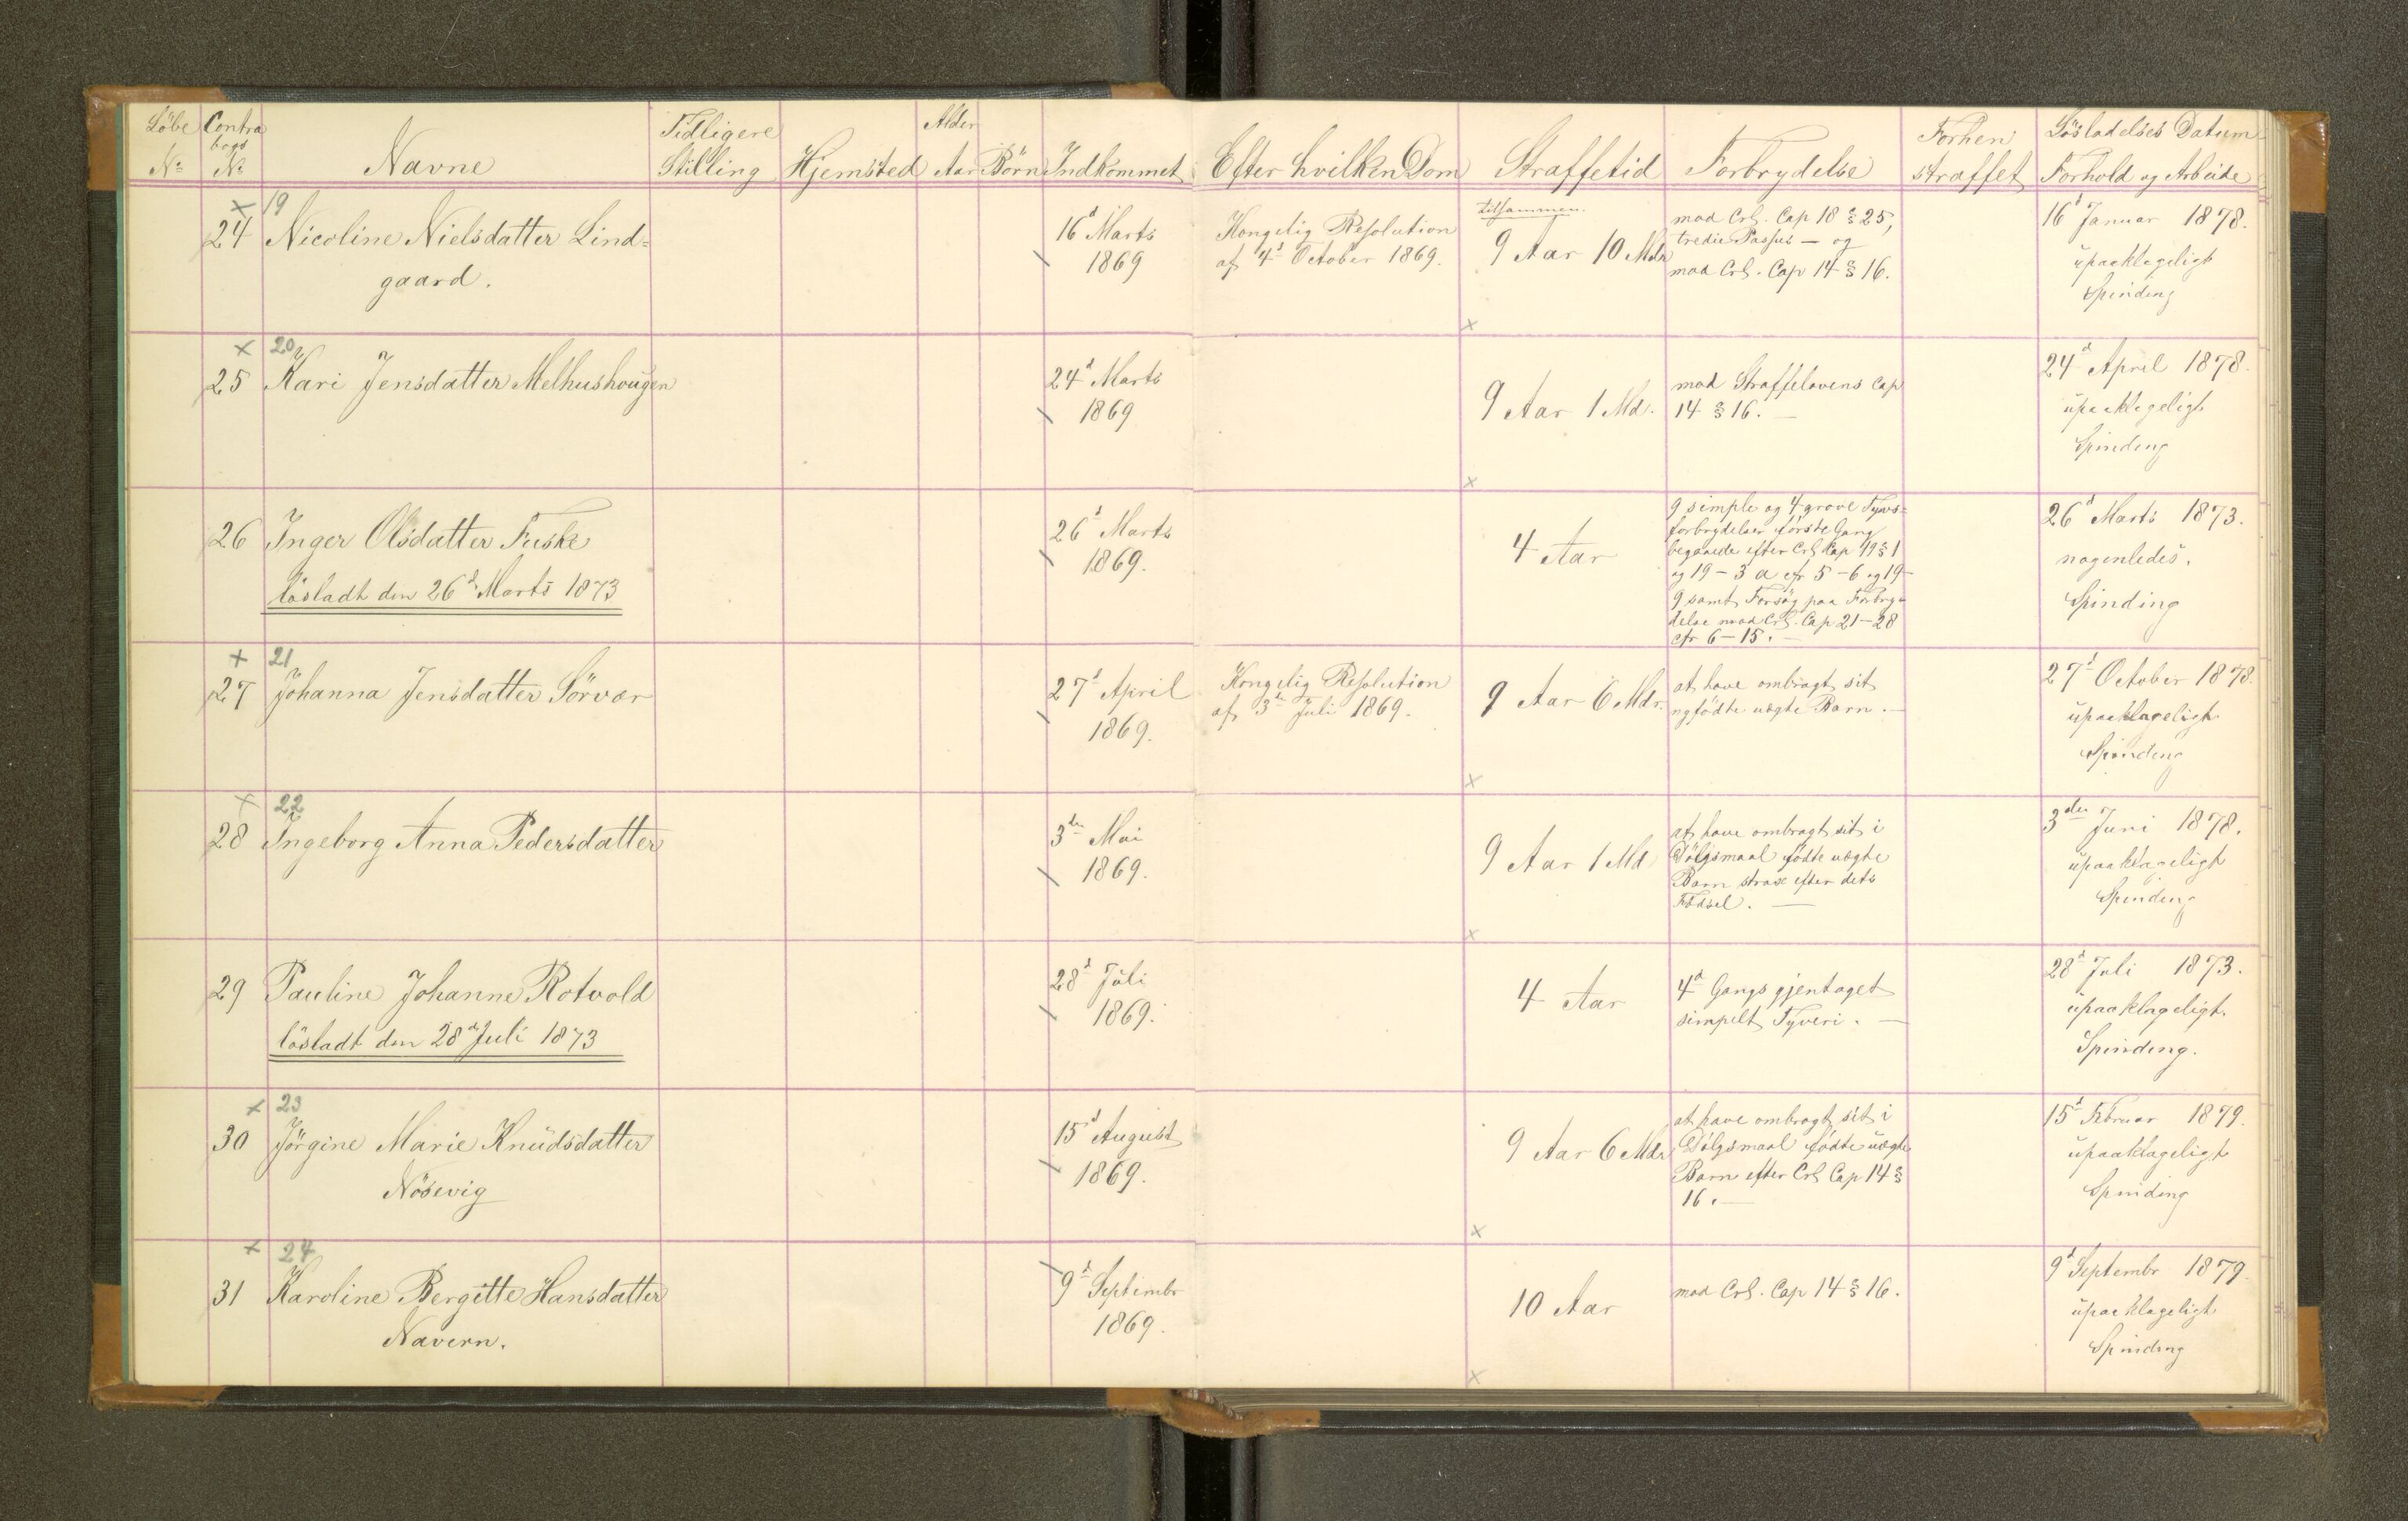 Löbe Contra Tidligere Alder Forhen Lösladelses Datum
bogs
No No Navne Stilling Hjemsted Aar Börn Indkommet Efter hvilken Dom Straffetid Forbrydelse straffet Forhold og Arbeide
x 19
24 Nicoline Nielsdatter Lind=
gaard.
16d Marts
1869
Kongelig Resolution
af 4d October 1869.
tilsammen.
9 Aar 10 Mdr
mod Crl. Cap 18 § 25,
tredie Passus — og
mod Crl. Cap 14 § 16.
16d Januar 1878.
upaaklageligt
Spinding
x 20
25 Kari Jensdatter Melhushougen
24d Marts
1869
9 Aar 1 Md.
x
mod Straffelovens Cap
14 § 16. —
24d April 1878.
upaaklageligt
Spinding
x
26 Inger Olsdatter Fuske
lösladt den 26d Marts 1873
26d Marts
1869.
4 Aar
9 simple og 4 grove Tyvs=
forbrydelser förste Gang
begaaede efter Crl Cap 19 § 1
og 19 – 3 a cfr 5 – 6 og 19–
9 samt Forsög paa Forbry=
delse mod Crl. Cap 21–28
cfr 6–15. —
26d Marts 1873.
nogenledes.
Spinding
x 21
27 Johanna Jensdatter Sörvær
27d April
1869.
Kongelig Resolution
af 3die Juli 1869.
9 Aar 6 Mdr.
at have ombragt sit
nyfödte uægte Barn. —
27d October 1878.
upaaklageligt
Spinding
x
x 22
28 Ingeborg Anna Pedersdatter
3die Mai
1869.
9 Aar 1 Md
at have ombragt sit i
Dölgsmaal födte uægte
Barn strax efter dets
Födsel. —
3die Juni 1878.
upaaklageligt
Spinding
x
29 Pauline Johanne Rotvold
lösladt den 28d Juli 1873
28d Juli
1869.
4 Aar
4d Gangs gjentaget
simpelt Tyveri. —
28d Juli 1873.
upaaklageligt.
Spinding.
x 23
30 Jörgine Marie Knudsdatter
Nösevig
15d August
1869.
9 Aar 6 Mdr
at have ombragt sit i
Dölgsmaal födte uægte
Barn efter Crl Cap 14 §
16. —
15d Februar 1879.
upaaklageligt
Spinding
x
x 24
31 Karoline Bergitte Hansdatter
Navern.
9d Septembr
1869.
10 Aar
mod Crl. Cap 14 § 16.
9d Septembr 1879.
upaaklageligt
Spinding
x